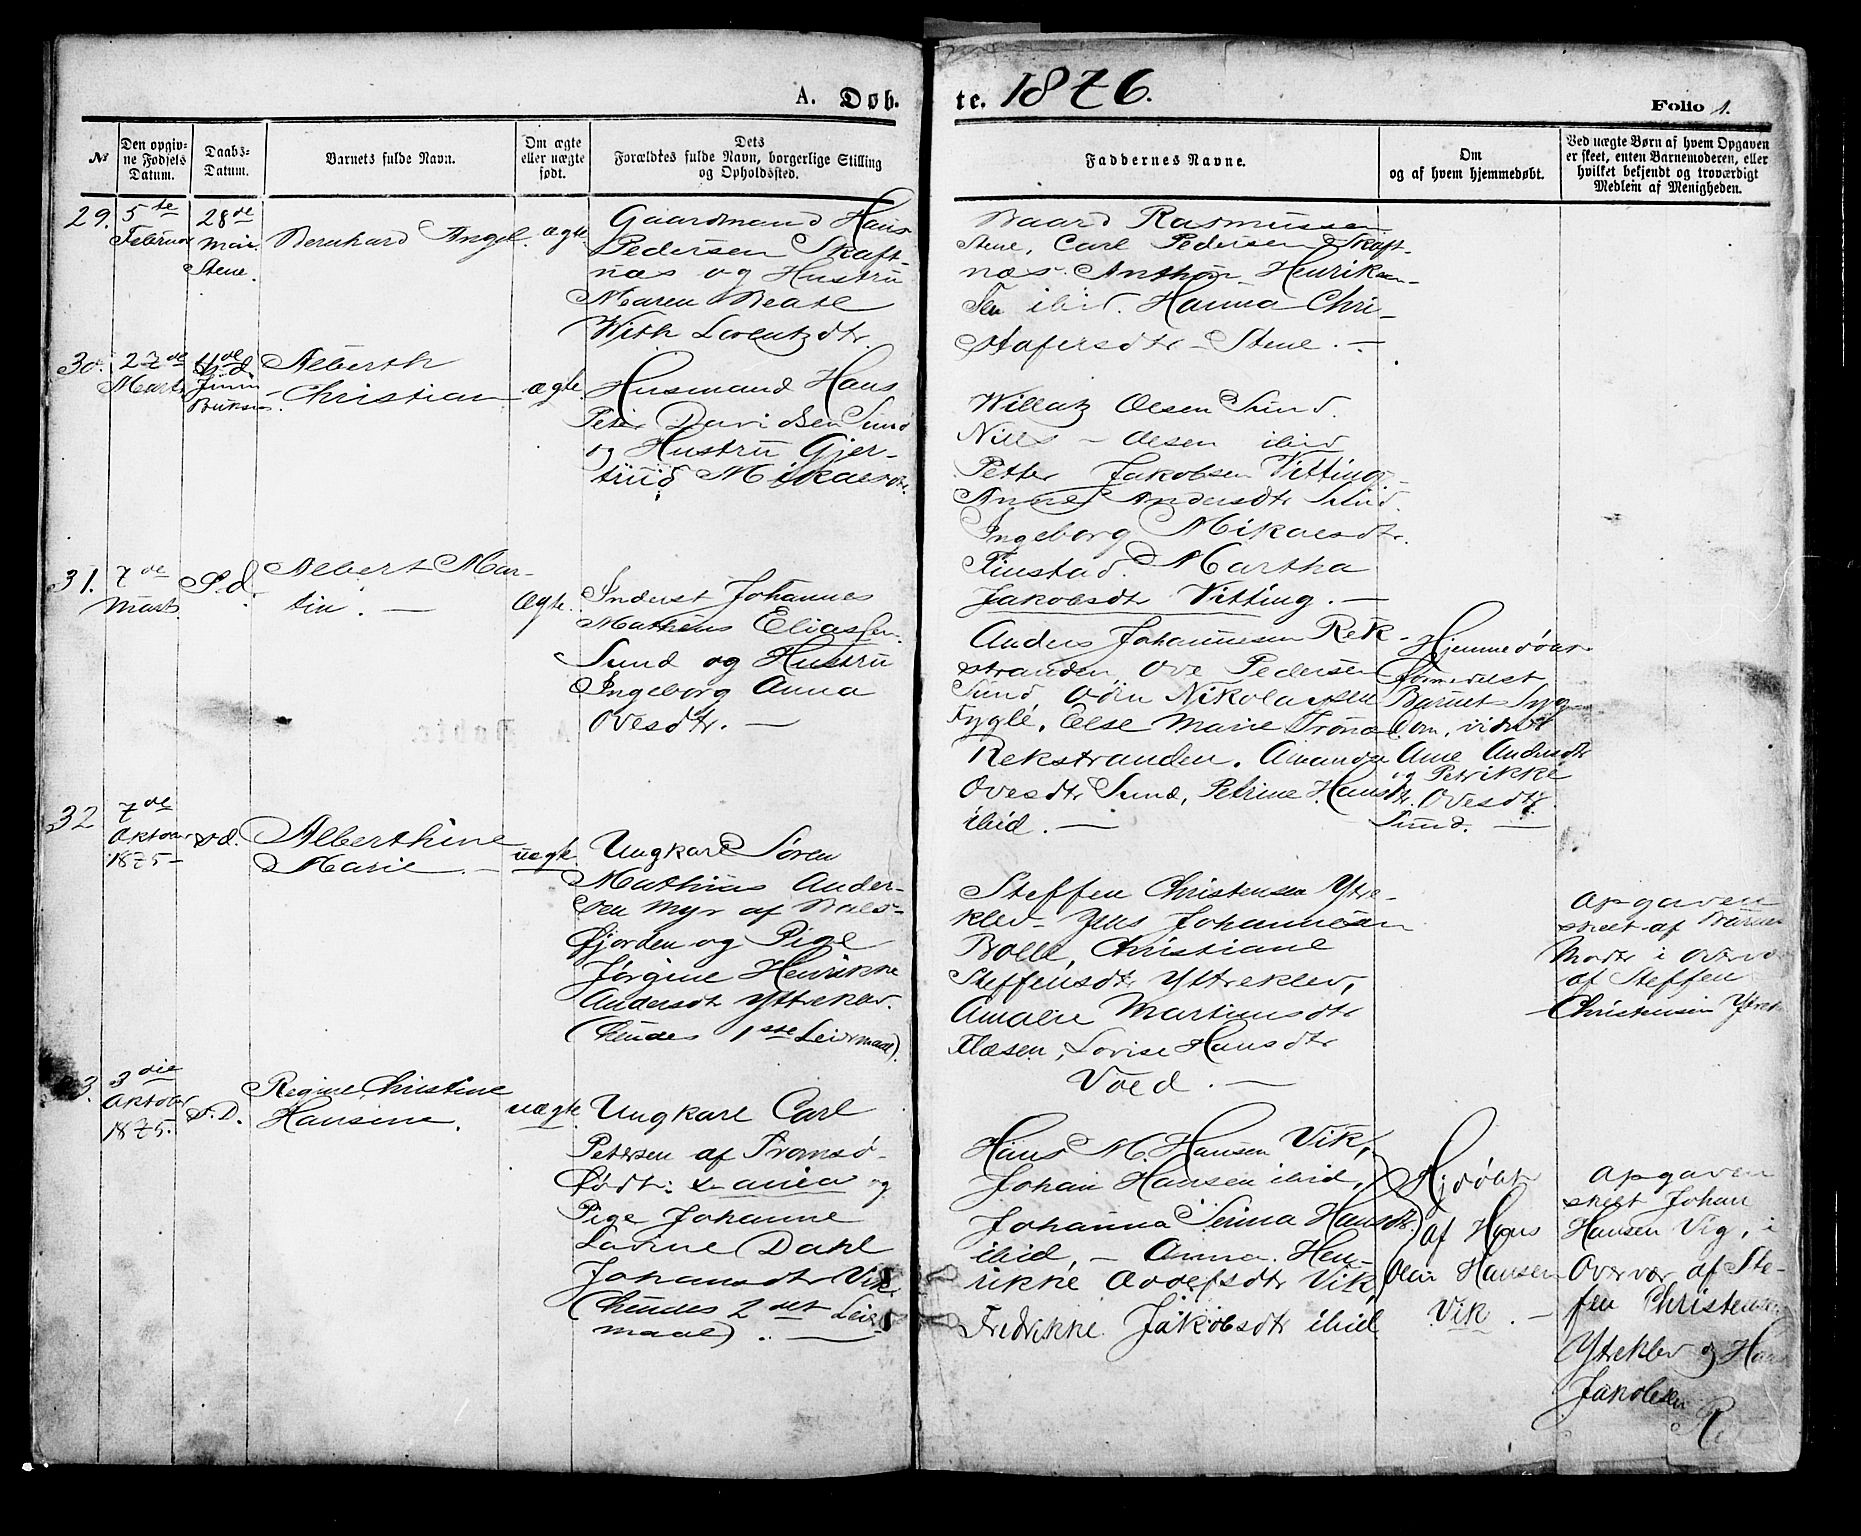 A. Døb.
te. 1876.
Folio 1.
№
Den opgiv-
ne Fødsels
Datum.
Daabs-
Datum.
Barnets fulde Navn.
Om ægte
eller uægte
født.
Dets
Forældres fulde Navn, borgerlige Stilling
og Opholdssted.
Faddernes Navne.
Om
og af hvem hjemmedøbt.
Ved uægte Børn af hvem Opgaven
er skeet, enten Barnemoderen, eller
hvilket bekjendt og troværdigt
Medlem af Menigheden.
29.
5te
Februar
28de
Mai
Stene.
Bernhard Angel.
ægte
Gaardmand Hans
Pedersen Skaft-
næs og Hustru
Maren Beate
With Lorentzdtr.
Baard Rasmussen
Stene, Carl Pedersen Skaft-
næs. Anthon Henrik-
sen ibid. Hanna Chri-
stofersdtr Stene. –
30.
27de
Marts
Juni
Buksn.
Alberth
Christian
ægte
Husmand Hans
Peter Davidsen Sund
og Hustru Gjer-
trud Mikaelsdtr.
Willatz Olsen Sund.
Nills – Olsen ibid
Petter Jakobsen Vitting
Anne Andersdtr Sund.
Ingeborg Mikaelsdtr.
Finstad. Martha
Jakobsdtr Vitting. –
31.
7de
Marts
S.d.
Albert Mar-
tin. –
Ægte.
Inderst Johannes
Matheus Eliassen
Sund og Hustru
Ingeborg Anna
Ovesdtr. –
Anders Johannesen Rek-
stranden, Ove Pedersen
Sund, Nikolaisen
Fygle, Else Marie Trøna
Rekstranden. Amanda
Ovesdtr Sund, Petrine Hansdtr.
ibid. –
Hjemmedøbt
formedelst
Barnets Syg-
dom, vidnet
Ane Andersdtr
og Petrikke
Ovesdtr.
Sund. –
32
7de
Oktober
1875 –
s.d.
Alberthine
Marie. –
uægte.
Ungkarl Søren
Mathias Ander-
sen Myr af Bals-
fjorden og Pige
Jørgine Henrikke
Andersdtr Yttreklev.
(hendes 1ste Leiermaal).
Steffen Christensen Ytre-
klev – Jens Johannesen
Bolle, Christiane
Steffensdtr Yttreklev,
Amalie Martinusdtr
Flæsen, Lovise Hansdtr
Voed. –
Opgaven
skeet af Barnets
Moder i Overvær
af Steffen
Christensen Ytrek
33.
3die
Oktober
1875.
S.D.
Regine Christine
Hansine.
uægte.
Ungkarl Carl
Petersen af Tromsø
Født: og
Pige Johanne
Lovine Dahl
Johansdtr Vik.
(hendes 2det Leier-
maal). –
Hans M. Hansen Vik,
Johan Hansen ibid,
Johanna Senna Hansdtr.
ibid, – Anna Hen-
rikke Adolfsdtr Vik,
Fredrikke Jakobsdtr ibid
Hjdøbt
af Hans
Olai Hansen
Vik. –
Opgaven
skeet Johan
Hansen Vig, i
Overvær af Ste-
fen Christensen
Ytreklev og Hans
Jakobsen